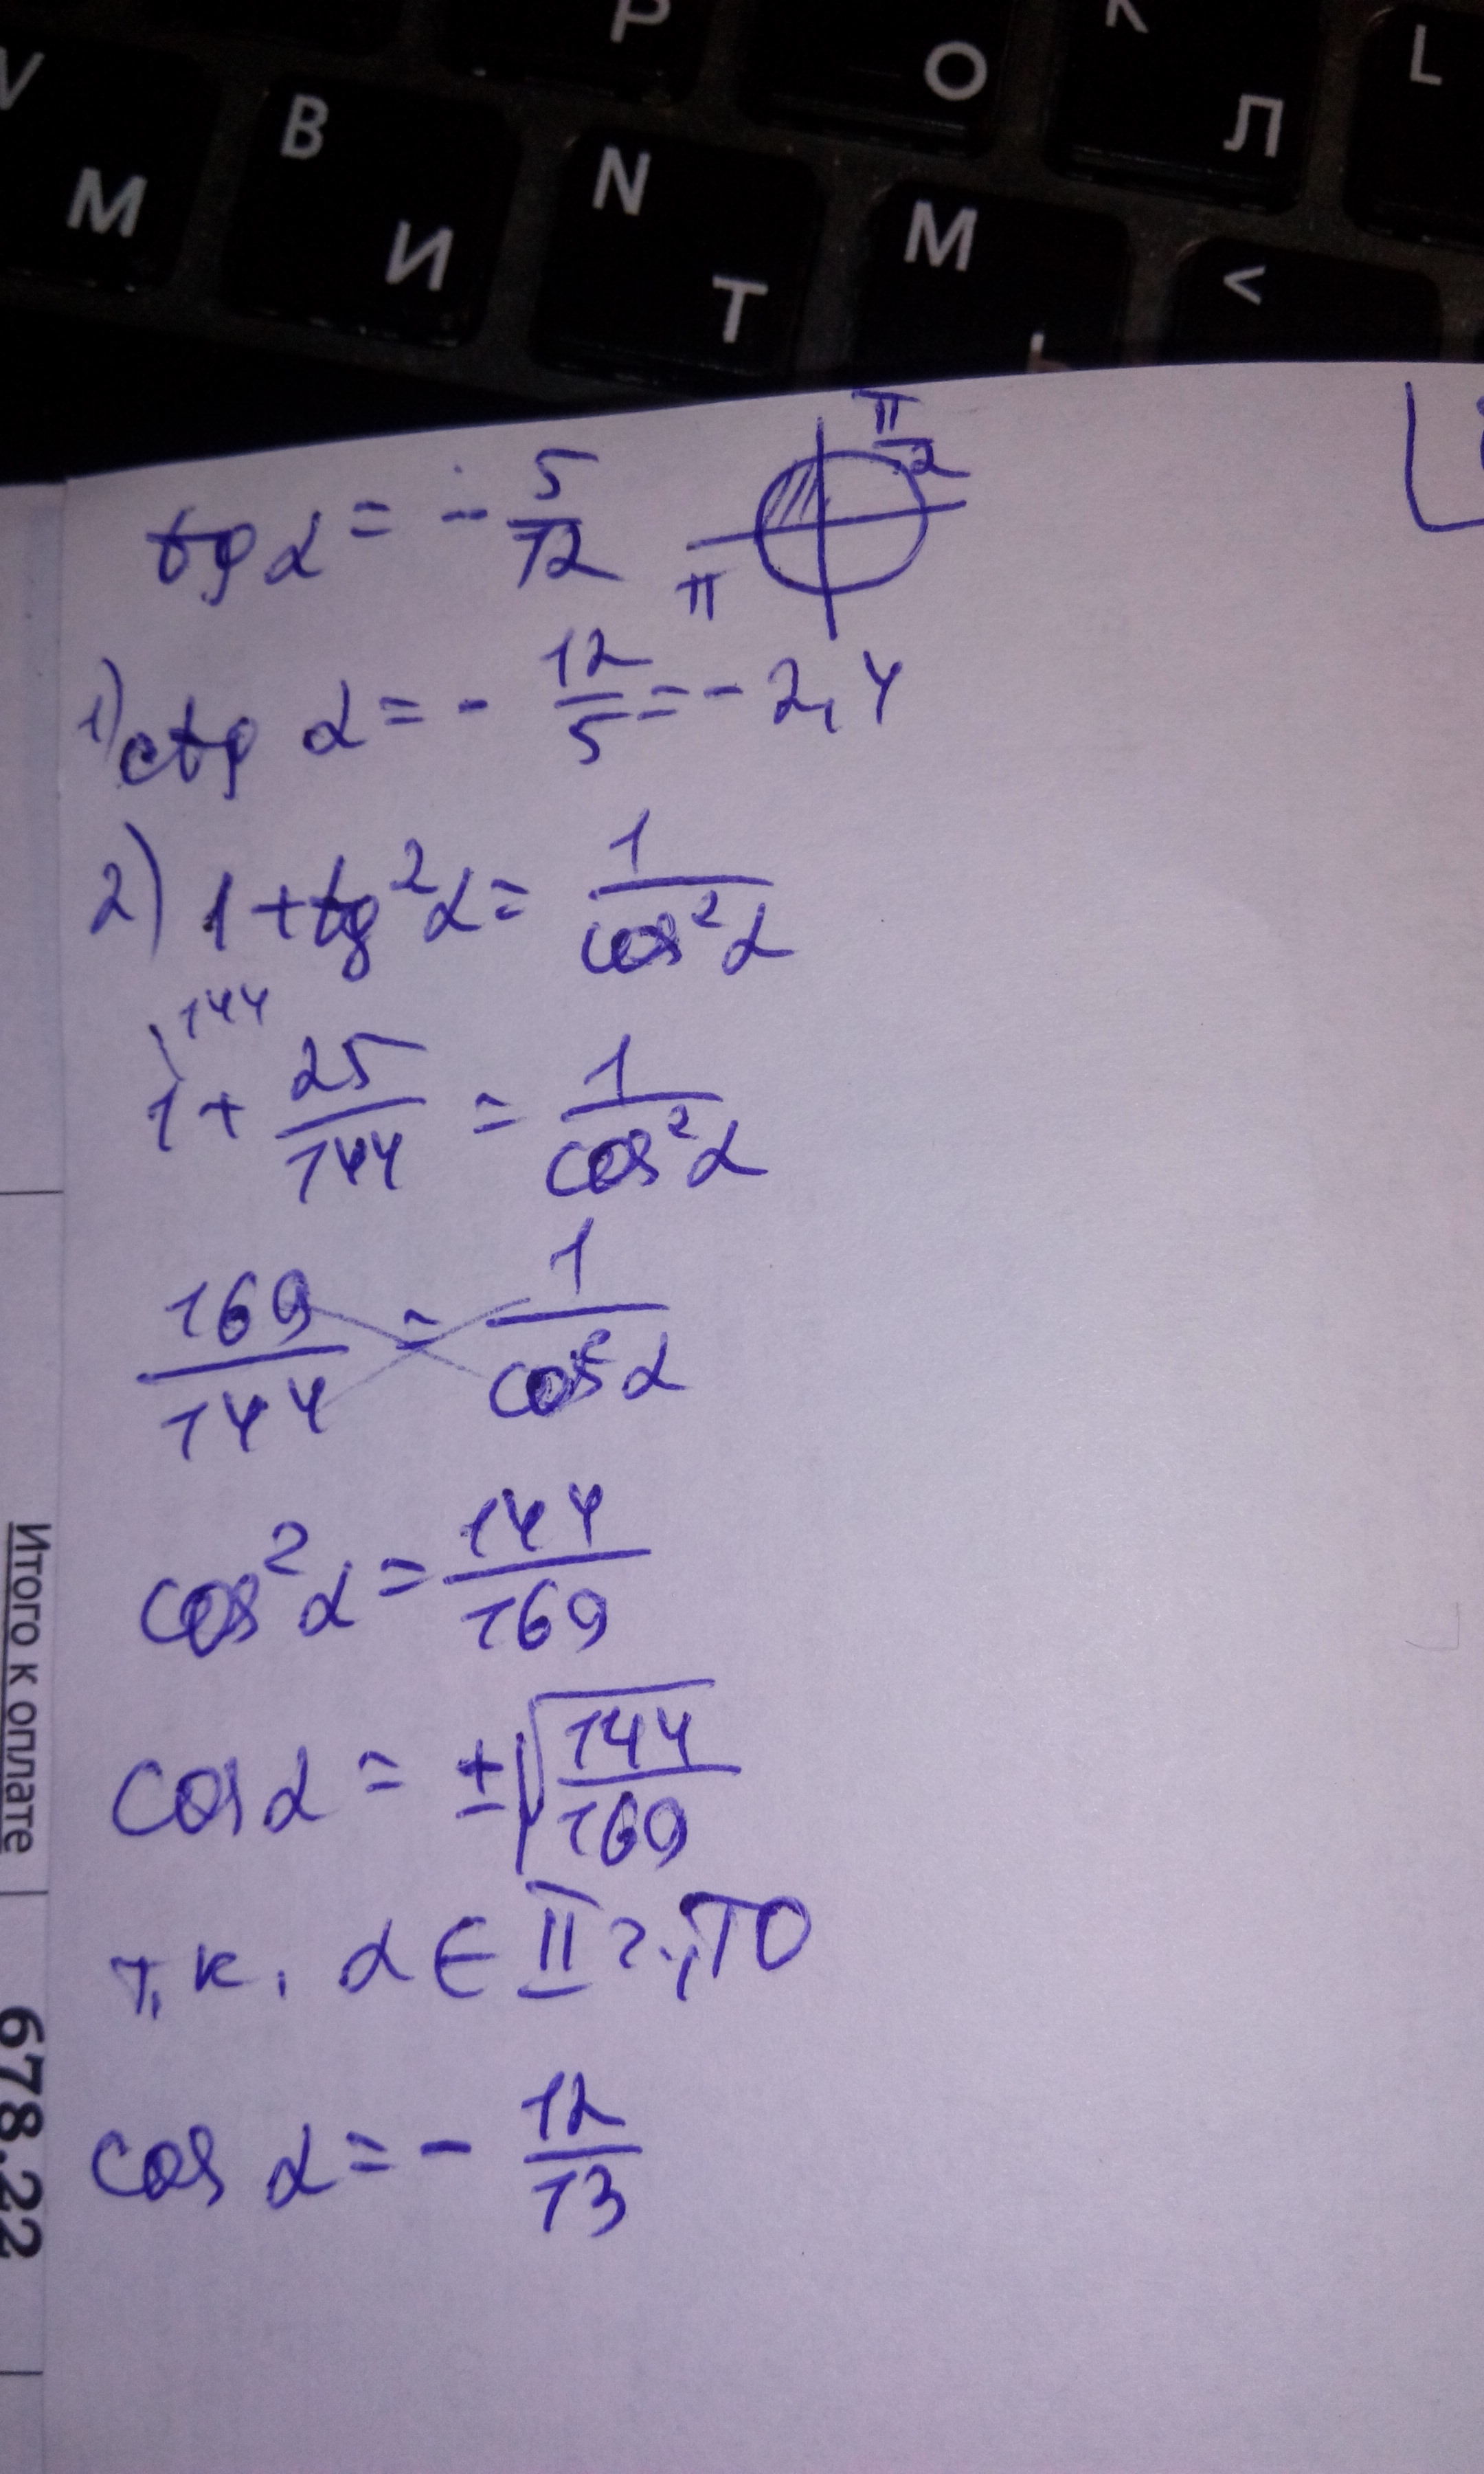 P
O
K
Л
L
V
М
B
И
N
Т
M
<
tg α = - 5/12
π/2
π
1) ctg α = - 12/5 = - 2,4
2) 1 + tg²α = 1/cos²α
144
1 + 25/144 = 1/cos²α
169/144 = 1/cos²α
cos²α = 144/169
cos α = ±√144/169
т.к. α ∈ II ч., ТО
cos α = - 12/13
Итого к оплате
678.22